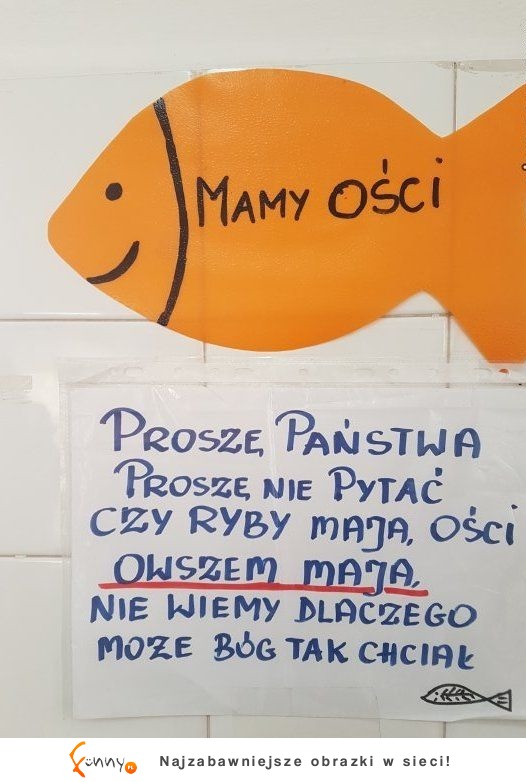 MAMY OŚCI
PROSZĘ PAŃSTWA
PROSZĘ NIE PYTAĆ
CZY RYBY MAJĄ OŚCI
OWSZEM MAJĄ,
NIE WIEMY DLACZEGO
MOŻE BÓG TAK CHCIAŁ
funny.pl Najzabawniejsze obrazki w sieci!